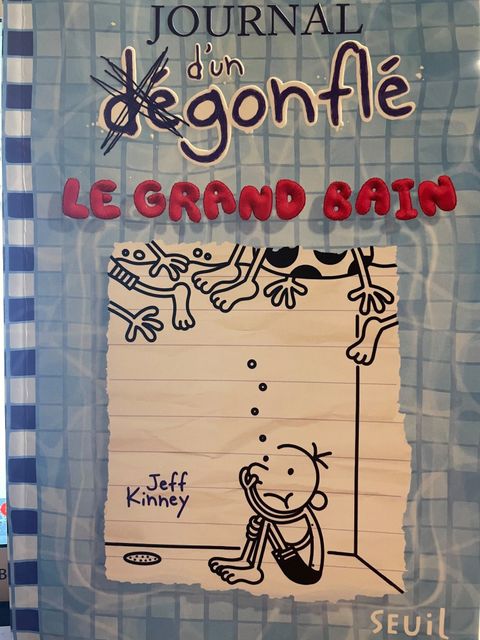 JOURNAL
d'un
dégonflé
LE GRAND BAIN
Jeff
Kinney
SEUIL
B